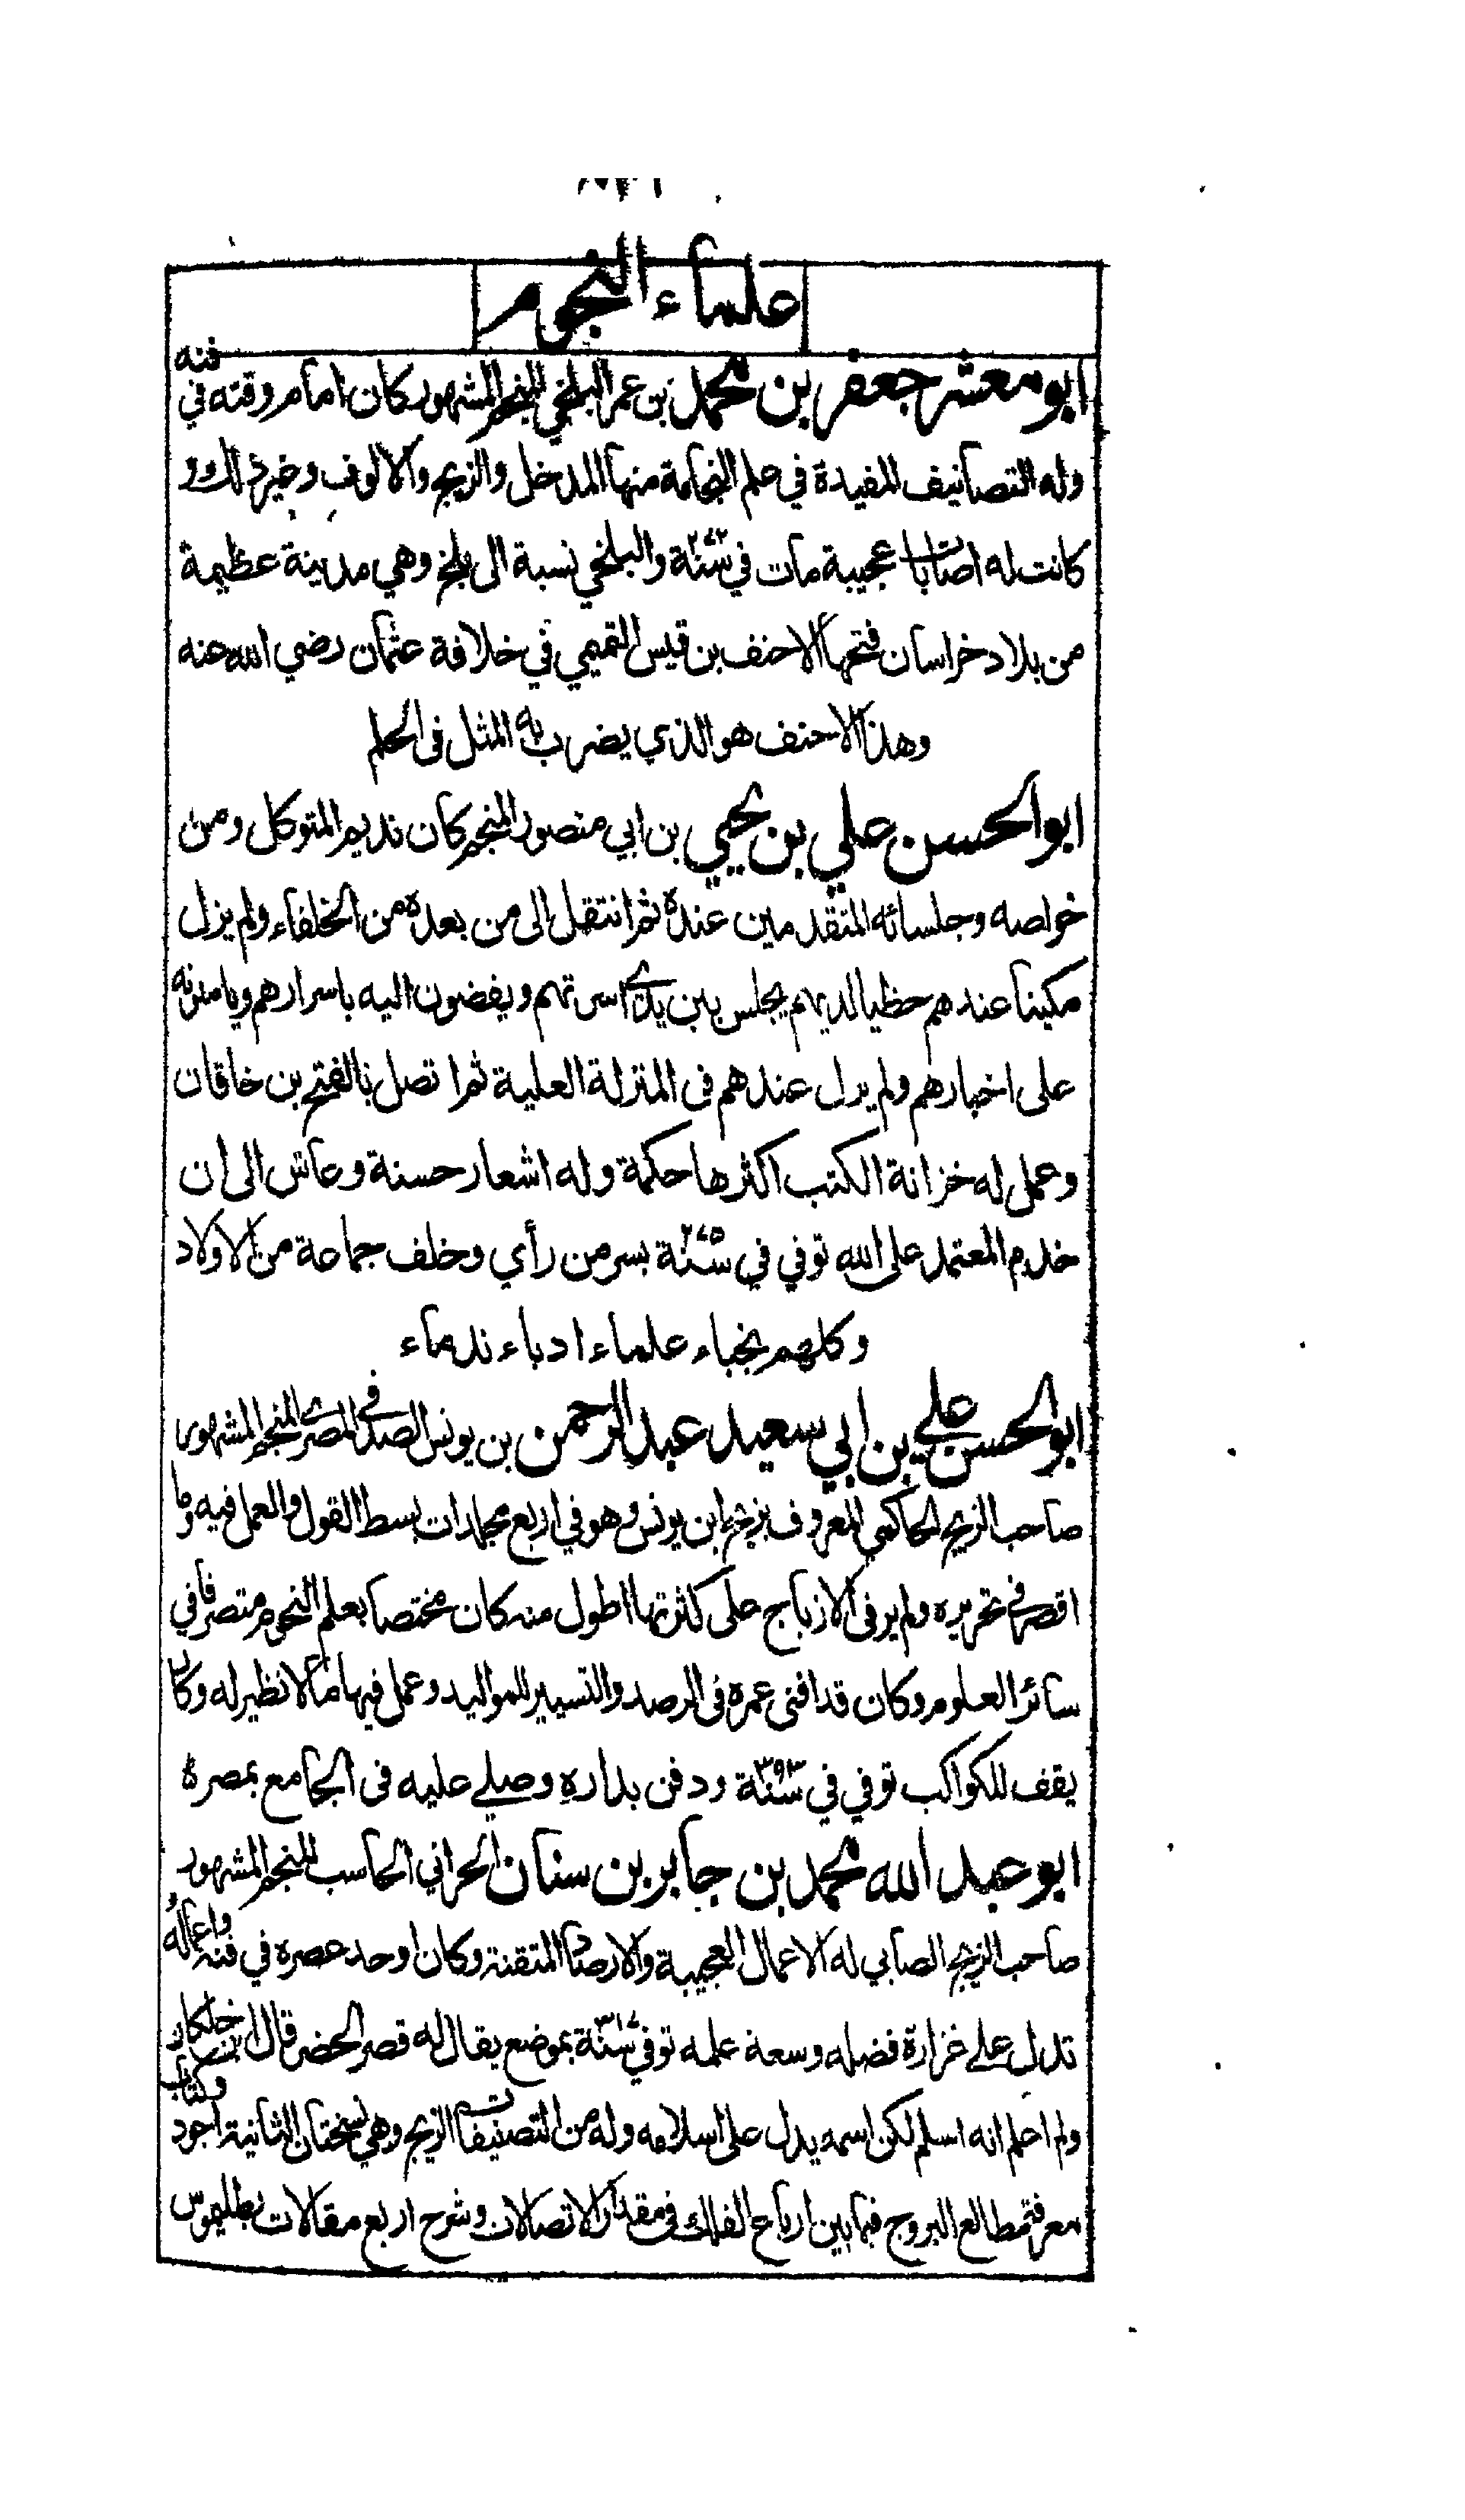 علماء النجوم
ابو معشر جعفر بن محمد بن عمر البلخي المنجم المشهور كان امام وقته في فنه
وله التصانيف المفيدة في علم النجامة منها المدخل والزيج والالوف وغير ذلك و
كانت له اصابات عجيبة مات في سنة ٢٧٢ والبلخي نسبة الى بلخ وهي مدينة عظيمة
من بلاد خراسان فتحها الاحنف بن قيس التميمي في خلافة عثمان رضي الله عنه
وهذا الاحنف هو الذي يضرب به المثل في الحلم
ابو الحسن علي بن يحيى بن ابي منصور المنجم كان نديم المتوكل ومن
خواصه وجلسائه المتقدمين عنده ثم انتقل الى من بعده من الخلفاء ولم يزل
مكينا عندهم حظيا لديهم يجلس بين يدي اسرتهم ويفضون اليه باسرارهم ويامنونه
على اخبارهم ولم يزل عندهم في المنزلة العلية ثم اتصل بالفتح بن خاقان
وعمل له خزانة الكتب اكثرها حكمة وله اشعار حسنة وعاش الى ان
خدم المعتمد على الله توفي في سنة ٢٧٥ بسر من رأي وخلف جماعة من الاولاد
وكلهم نجباء علماء ادباء ندماء
ابو الحسن علي بن ابي سعيد عبد الرحمن بن يونس الصدفي المصري المنجم المشهور
صاحب الزيج الحاكمي المعروف بزيج ابن يونس وهو في اربع مجلدات بسط القول والعمل فيه وما
اقصر في تحريره ولم ير في الازباج على كثرتها اطول منه كان مختصا بعلم النجوم متصرفا في
سائر العلوم وكان قد افنى عمره في الرصد والتسيير للمواليد وعمل فيها ما لا نظير له وكان
يقف للكواكب توفي في سنة ٣٩٣ ودفن بداره وصلي عليه في الجامع بمصرة
ابو عبد الله محمد بن جابر بن سنان الحراني الحاسب المنجم المشهور
صاحب الزيج الصابي له الاعمال العجيبة والارصاد المتقنة وكان اوحد عصره في فنه واعماله
تدل على غزارة فضله وسعة علمه توفي سنة ٣١٧ بموضع يقال له قصر الحضر قال ابن خلكان
ولم اعلم انه اسلم لكن اسمه يدل على اسلامه وله من التصنيفات الزيج وهي نسختان الثانية اجود وكتاب
معرفة مطالع البروج فيما بين ارباع الفلك في مقدار الاتصالات وشرح اربع مقالات بطليموس